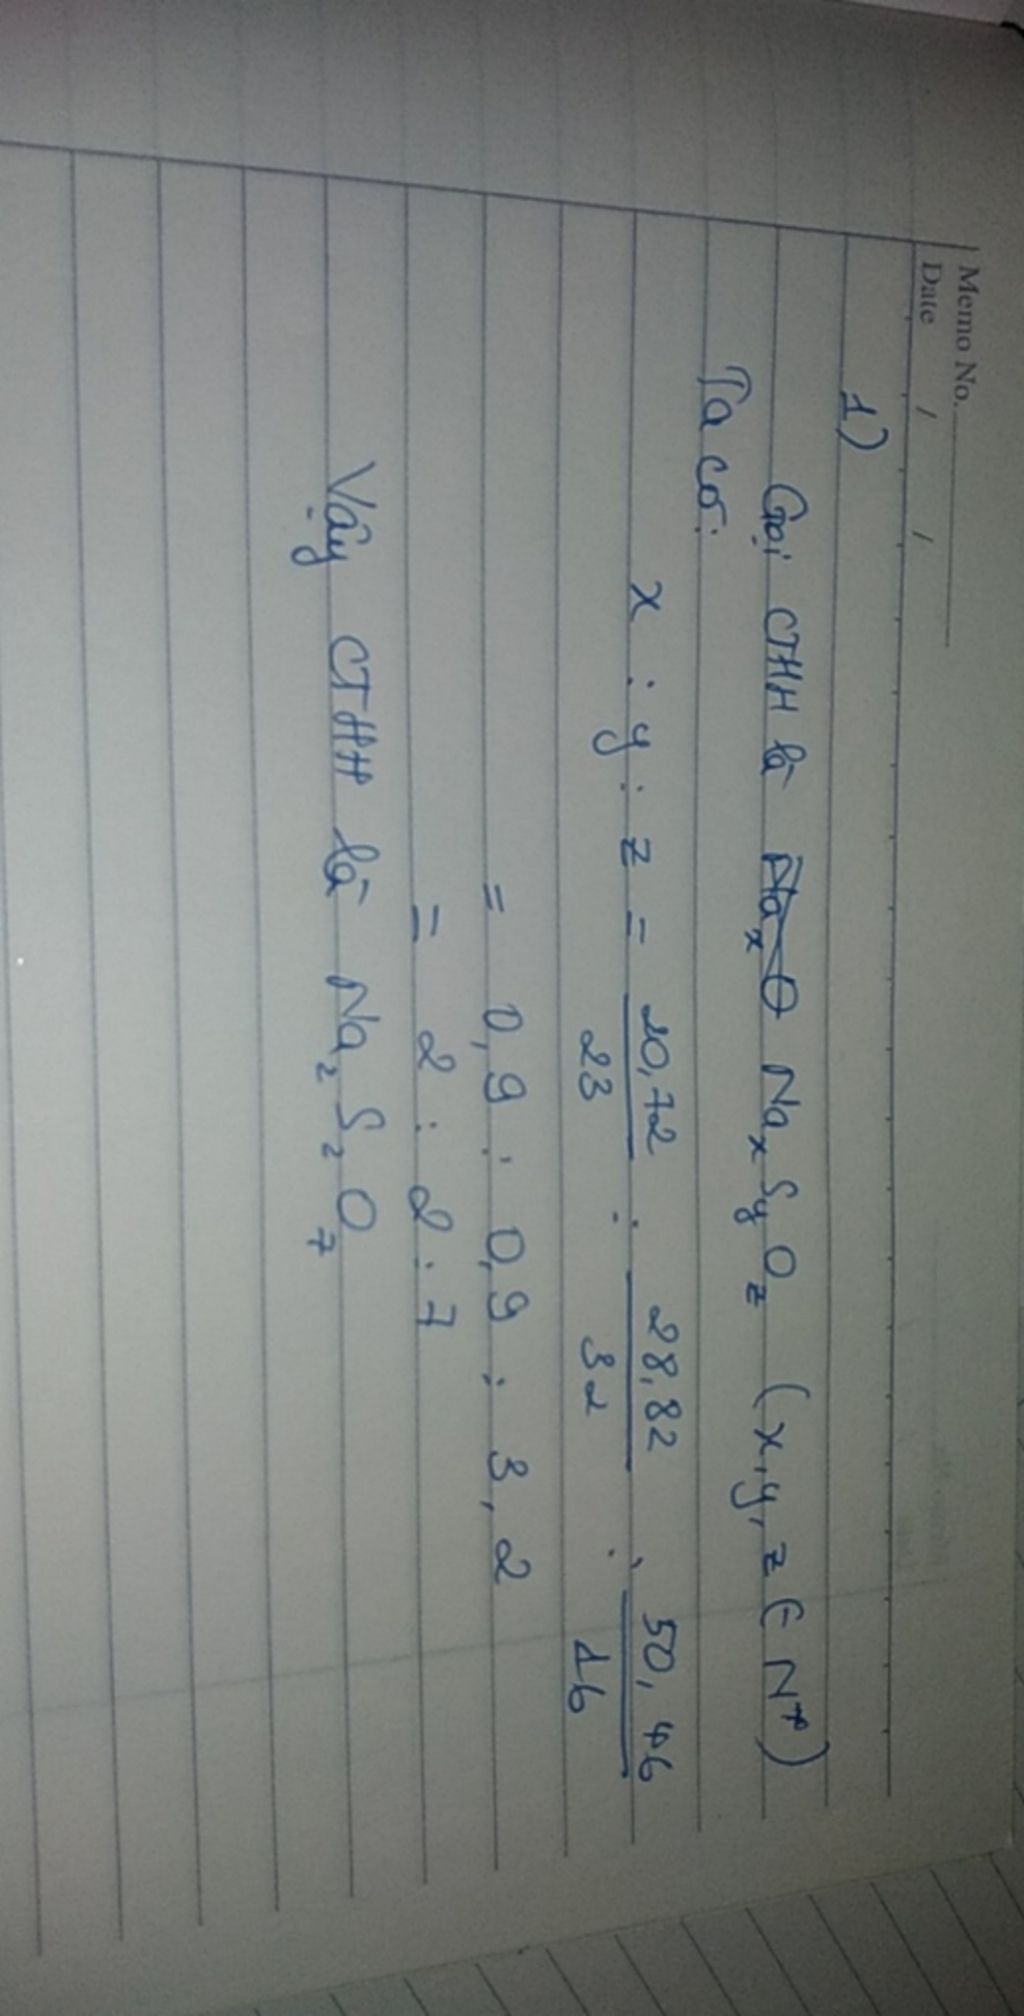 Memo No.
Date / /
1)
Gọi CTHH là NaxO NaxSyOz (x, y, z ∈ N*)
Ta có:
x : y : z = 20,72/23 : 28,82/32 : 50,46/16
= 0,9 : 0,9 : 3,2
= 2 : 2 : 7
Vậy CTHH là Na2S2O7